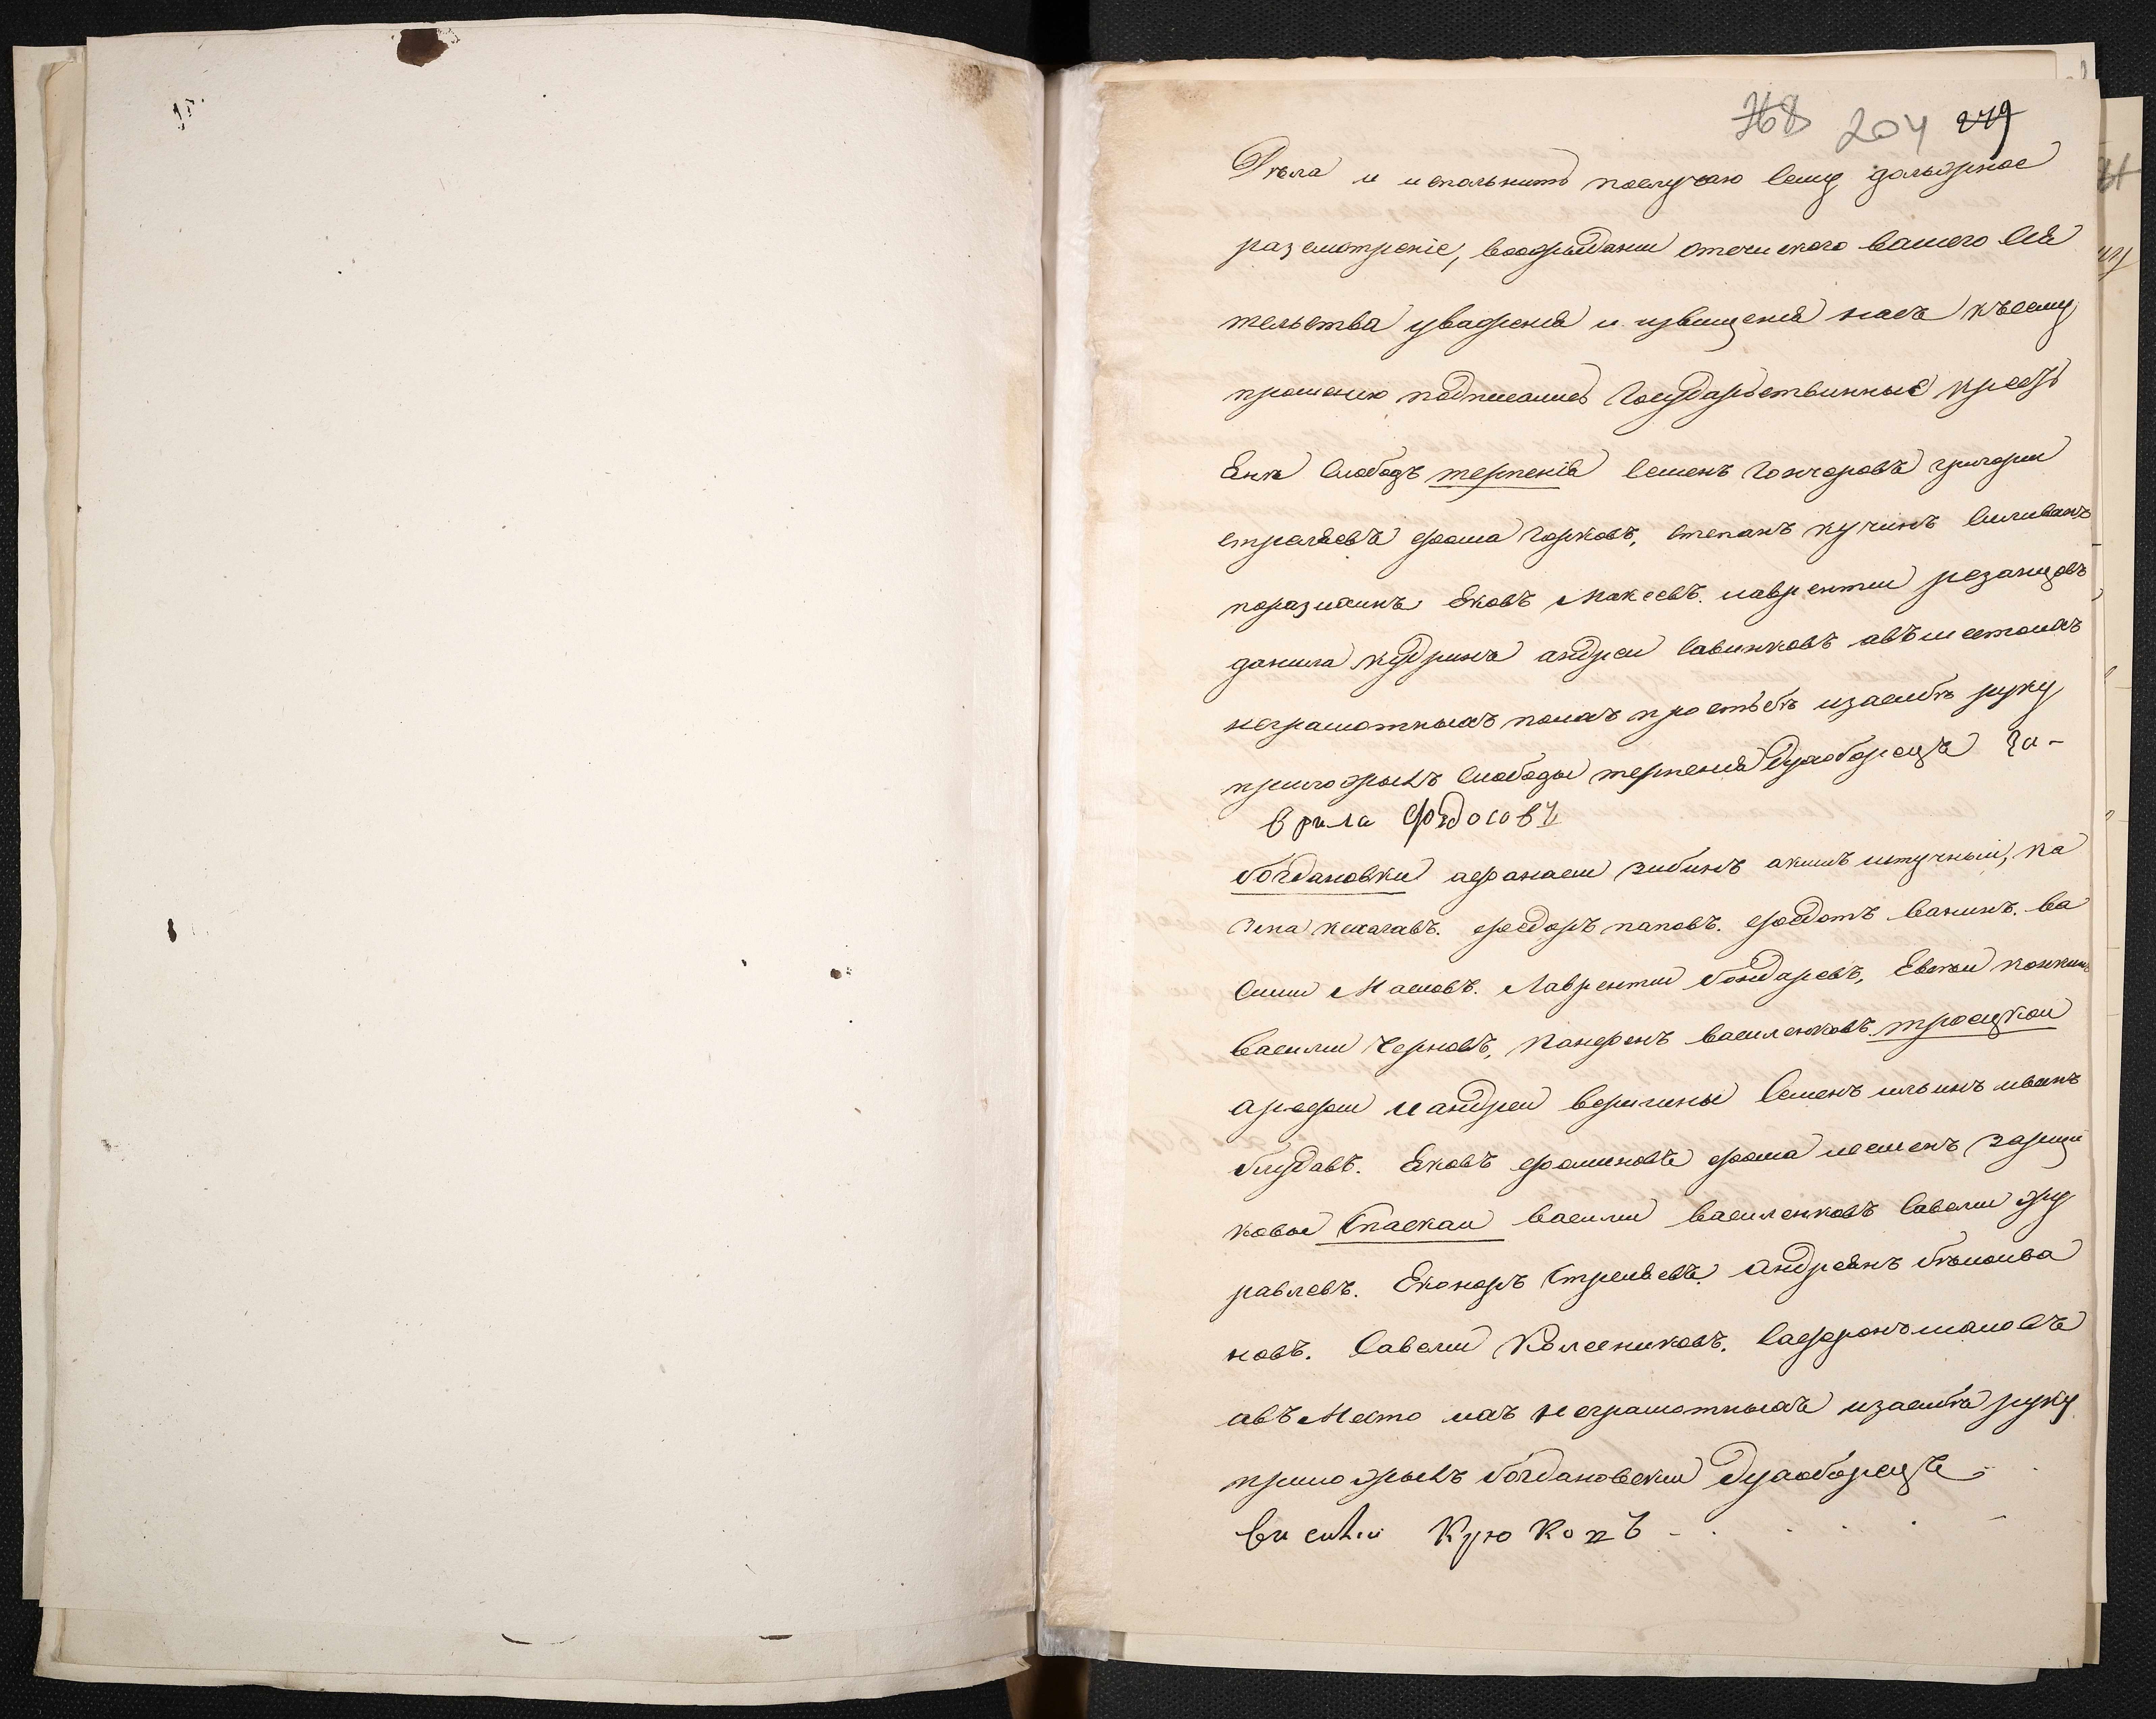 768 204 279
Дѣла и исполнить послучаю сему должное
разсмотреніе, воожидани отечискаго вашего сия
тельства уважения и извищения насъ къ сему
прошению подписались Государьствинные кресть
Ене Слободъ терпенія Семенъ Гончоровъ григори
стреляевъ фома Горковъ, степанъ кучинъ Силиванъ
поразихинъ Яковъ Макеевъ. лаврентии резанцовъ
данила кудринъ андреи Савинковъ авъместоихъ
неграмотныхъ поихъ простьбѣ изасибѣ руку
приложылъ Слободы терпения Духоборецъ Га-
врила Федосовъ
богдановки афанаси зибинъ акимъ штучный, ка
зма колгавъ. федоръ паповъ. федотъ ванинъ. ва
Сили Масловъ. Лаврентии бондаревъ, Евсеи конкинъ
василии Черновъ, Панфенъ василенковъ. троецкои
арефеи и андреи веригины Семенъ ильинъ иванъ
блудавъ. Яковъ фоминовъ фома исеменъ зарщи
ковы Спаскаи василии василенковъ Савели жу
равлевъ. Еконоръ Стреляевъ. андреянъ бѣлоива
новъ. Савели Колесниковъ. Сафронъ малоевъ
авъ Место ихъ неграмотныхъ изасибѣ руку
приложылъ богдановски духоборецъ
василіи Крюковъ